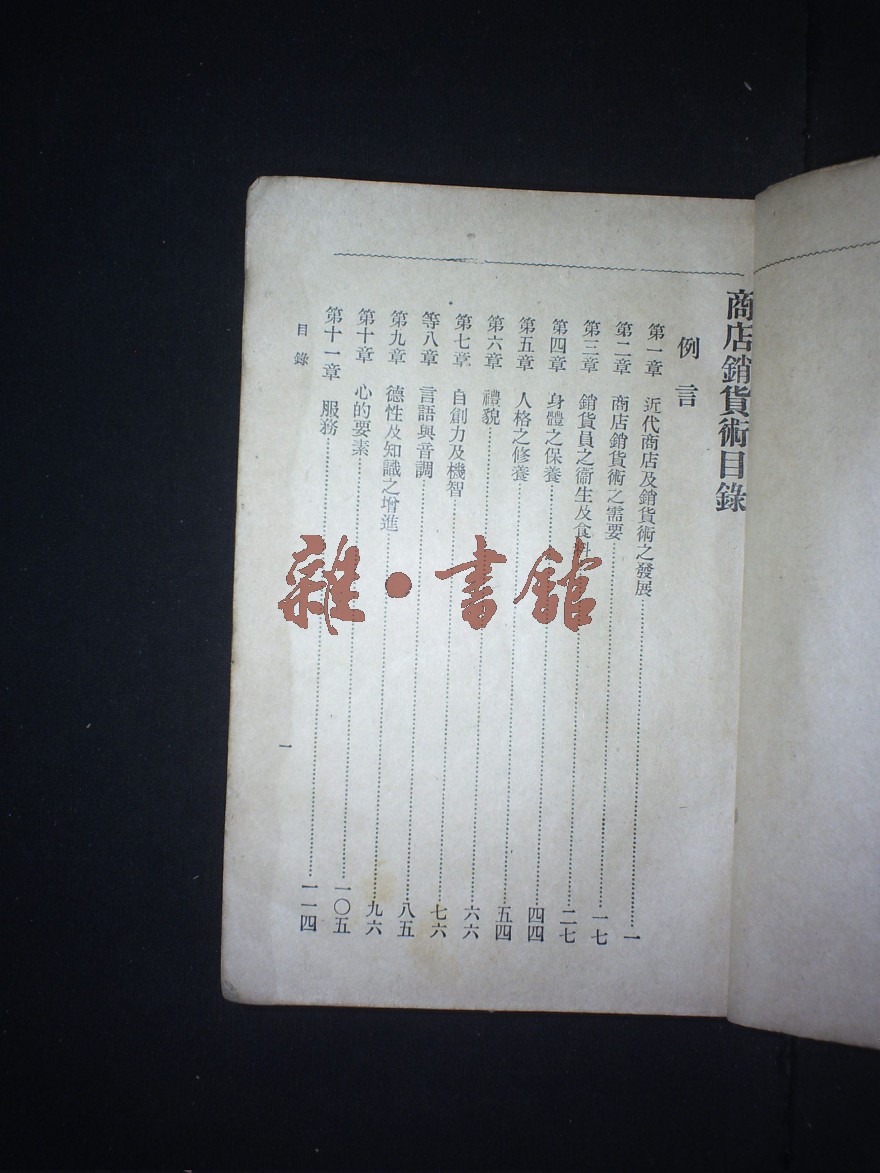 商店銷貨術目錄
例言
第一章 近代商店及銷貨術之發展 一
第二章 商店銷貨術之需要 一七
第三章 銷貨員之衞生及食料 二七
第四章 身體之保養 四四
第五章 人格之修養 五四
第六章 禮貌 六六
第七章 自創力及機智 七六
等八章 言語與音調 八五
第九章 德性及知識之增進 九六
第十章 心的要素 一〇五
第十一章 服務 一一四
目錄
一
雜·書館